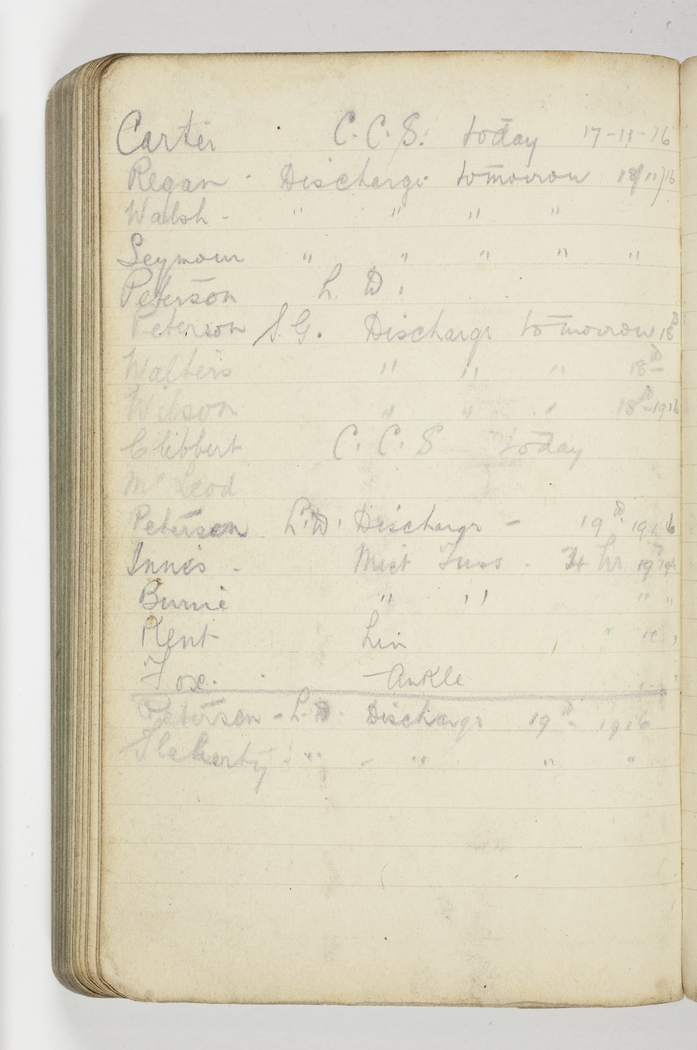 Carter C.C.S. today 17-11-16
Regan - Discharge tomorrow 18/11/16
Walsh - " " " "
Seymour " " " " "
Peterson L. D.
Peterson S.G. Discharge tomorrow 18th
Walters " " " 18th
Wilson " " " 18th-1916
Clibbert C. C. S today
McLeod
Peterson L.D. Discharge - 19th 1916
Innes - Mist Tuss - 4 hr 19th
Burnie " " " "
Kent Lin " "
Fox. Ankle
Peterson - L.D. Discharge 19th 1916
Flaherty " - " " "